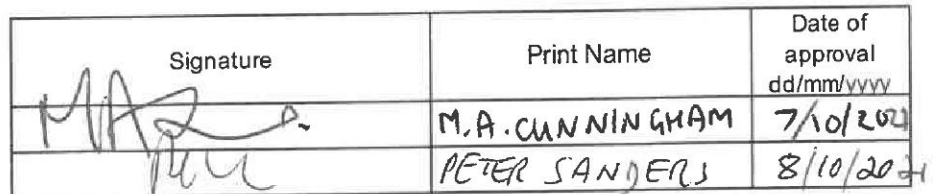 Signature Print Name Date of
approval
dd/mm/yyyy
M.A. CUNNINGHAM 7/10/2021
PETER SANDERS 8/10/2021